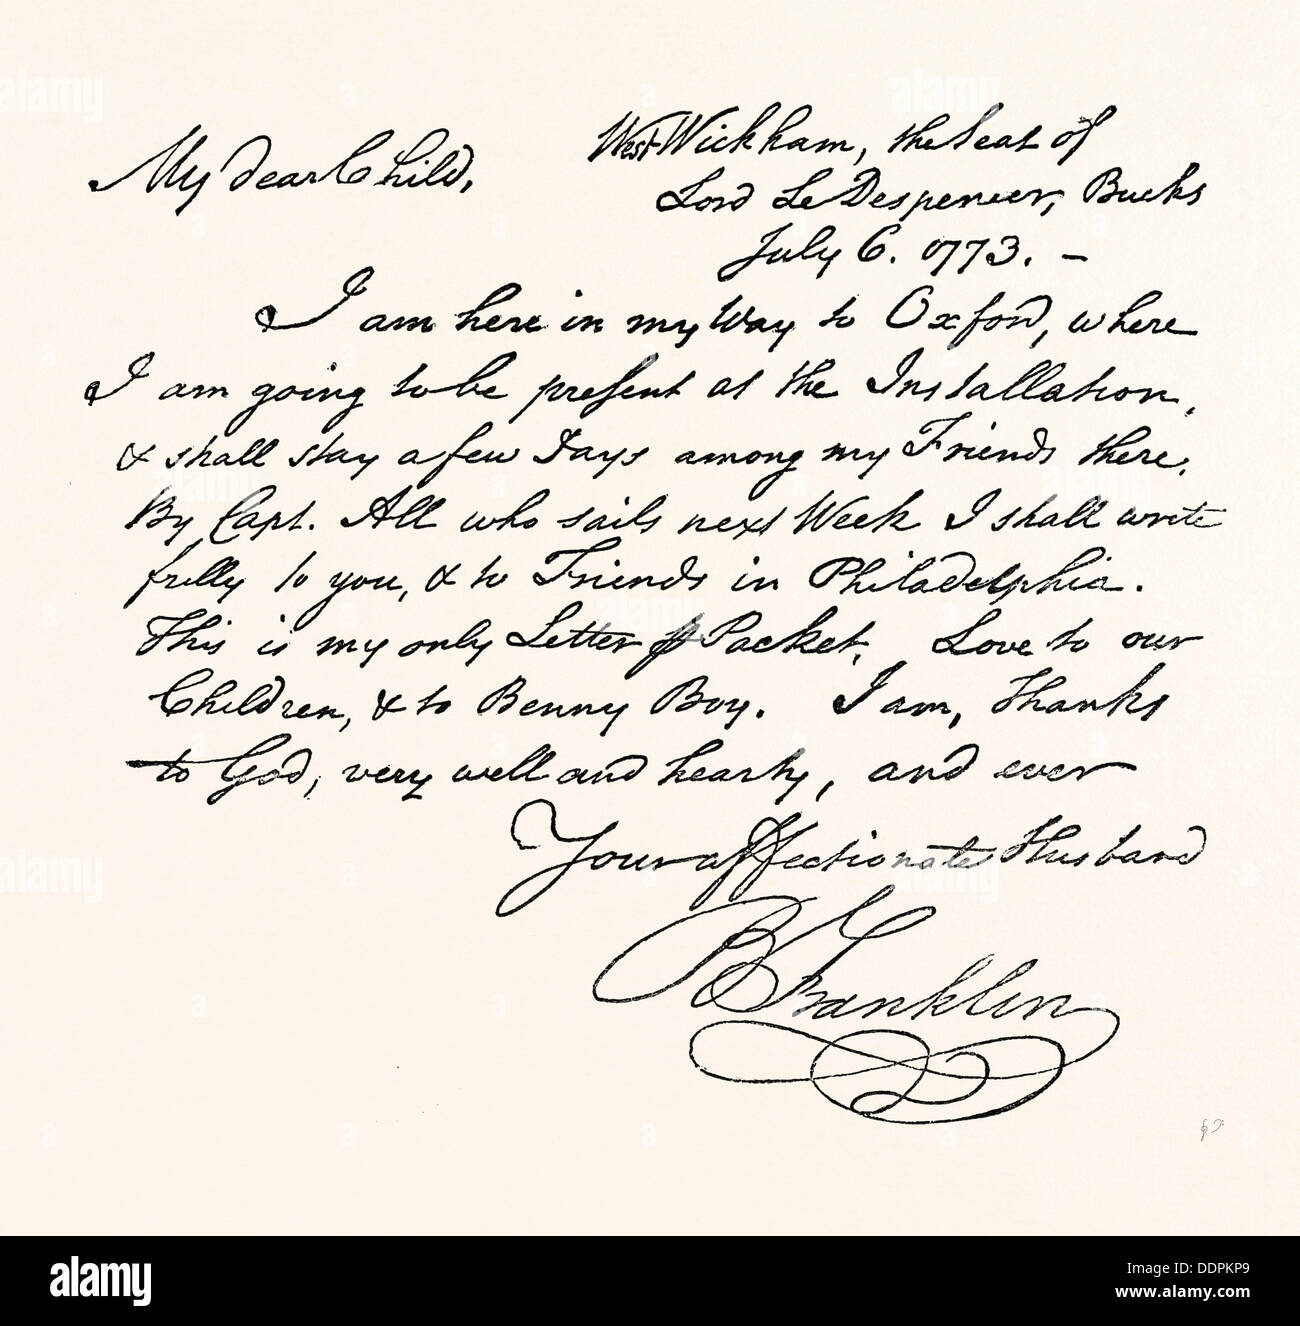 My dear Child,
West Wickham, the Seat of
Lord Le Despencer, Bucks
July 6. 1773. –
I am here in my Way to Oxford, where
I am going to be present at the Installation,
& shall stay a few Days among my Friends there.
By Capt. All who sails next Week I shall write
fully to you, & to Friends in Philadelphia.
This is my only Letter Packet. Love to our
Children, & to Benny Boy. I am, Thanks
to God, very well and hearty, and ever
Your affectionate Husband
B Franklin
alamy
Image ID: DDPKP9
www.alamy.com